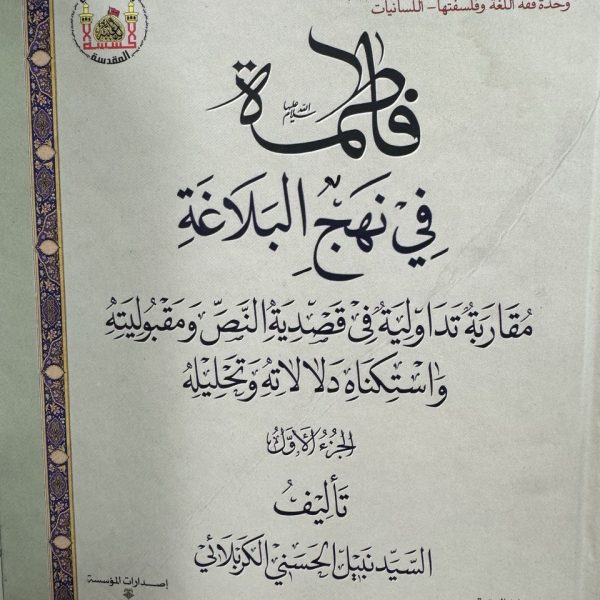 وحدة فقه اللغة وفلسفتها - اللسانيات
المقدسة
فاطمة
عليها السلام
فِي نَهْجِ البَلَاغَةِ
مُقَارَبَةٌ تَدَاوُلِيَةٌ فِي قَصْدِيَةِ النَّصِّ وَمَقْبُولِيَتِهِ
وَاسْتِكْنَاهِ دَلَالَاتِهِ وَتَحْلِيلِهِ
الجُزْءُ الأَوَّلُ
تَأْلِيفُ
السَيِّد نَبِيل الحَسَنِي الكَربَلَائِي
إصدارات المؤسسة